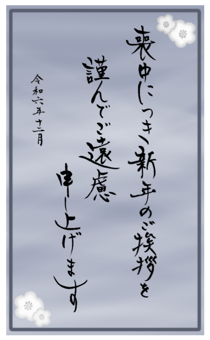 喪中につき新年のご挨拶を
謹んでご遠慮
申し上げます
令和六年十二月